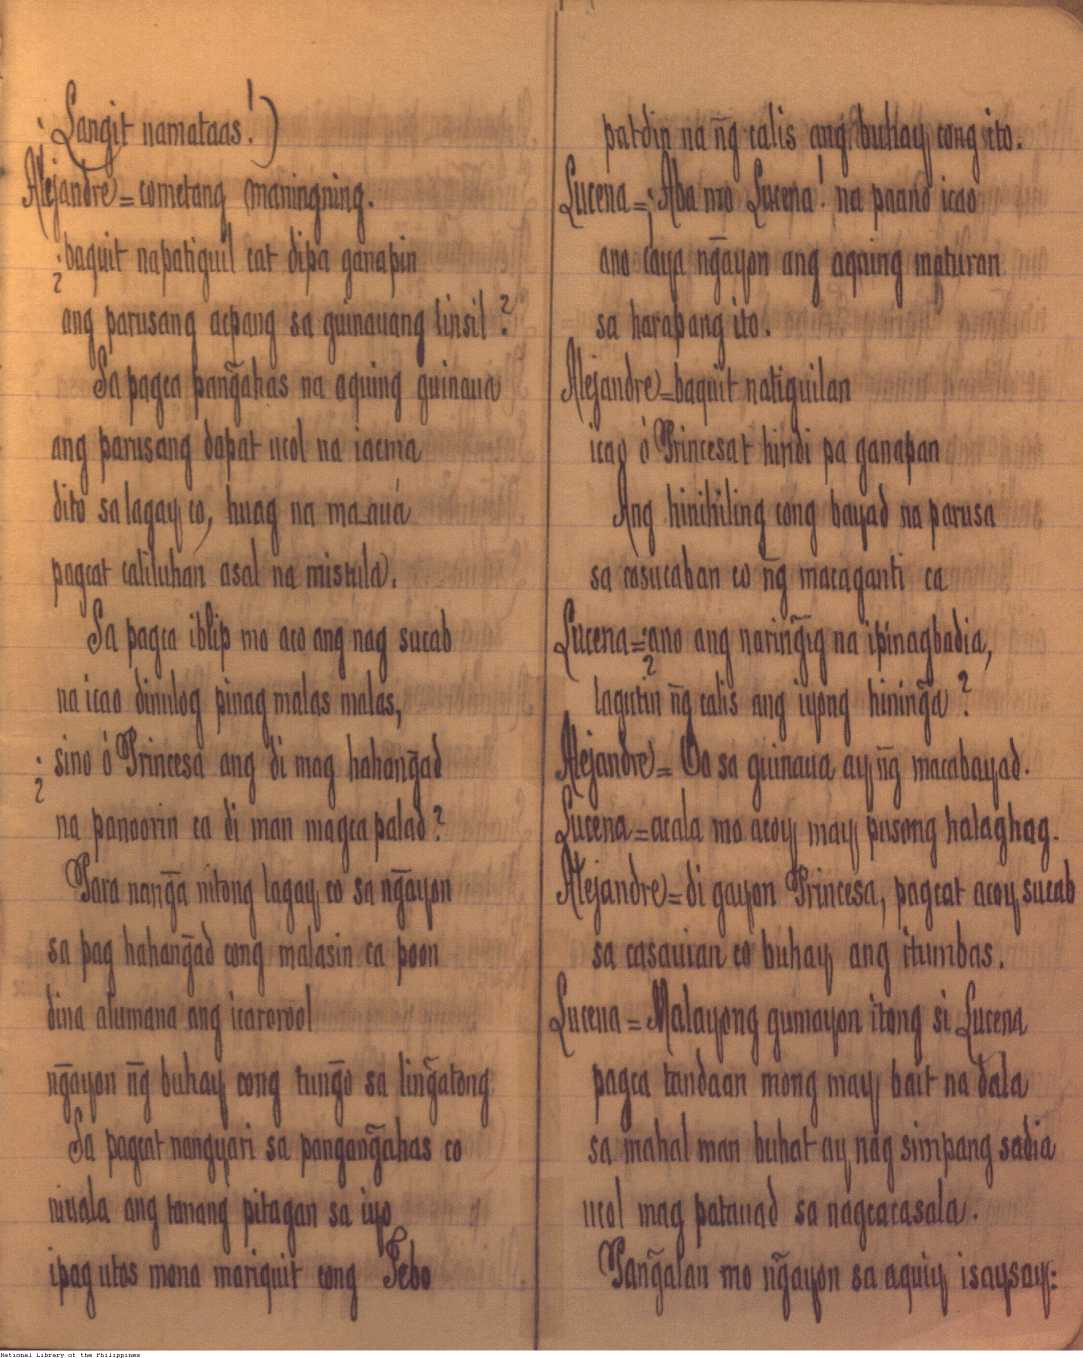 ¡Langit namataas!)
Alejandre = cometang maningning.
¿baquit napatiguil cat dipa ganapin
ang parusang acpang sa guinauang linsil?
Sa pagca pang̃ahas na aquing guinaua
ang parusang dapat ucol na iacma
dito sa lagay co, huag na ma_auá
pagcat caliluhan asal na mistula.
Sa pagca iblip mo aco ang nag sucab
na icao dinulog pinag malas malas,
¿sino ó Princesa ang di mag hahang̃ad
na panoorin ca di man magca palad?
Para nang̃a nitong lagay co sa ng̃ayon
sa pag hahang̃ad cong malasin ca poon
dina alumana ang icarorool
ng̃ayon ñg buhay cong tung̃o sa ling̃atong
Sa pagcat nangyari sa pangang̃ahas co
niuala ang tanang pitagan sa iyo
ipag utos mona mariquit cong Febo
patdin na ñg calis ang buhay cong ito.
Lucena = ¡Aba mo Lucena! na paano icao
ano caya ng̃ayon ang aquing maturan
sa harapang ito.
Alejandre = baquit natiguilan
icao ó Princesa t hindi pa ganapan
Ang hinihiling cong bayad na parusa
sa casucaban co ñg macaganti ca
Lucena = ¿ano ang naring̃ig na ipinagbadia,
lagutin ñg calis ang iyong hining̃a?
Alejandre = Oo sa guinaua ay ñg macabayad.
Lucena = acala mo acoy may pusong halaghag.
Alejandre = di gayon Princesa, pagcat acoy sucab
sa casauian co buhay ang itumbas.
Lucena = Malayong gumayon itong si Lucena
pagca tandaan mong may bait na dala
sa mahal man buhat ay nag simpang sadia
ucol mag patauad sa nagcacasala.
Pang̃alan mo ng̃ayon sa aquiy isaysay:
National Library of the Philippines